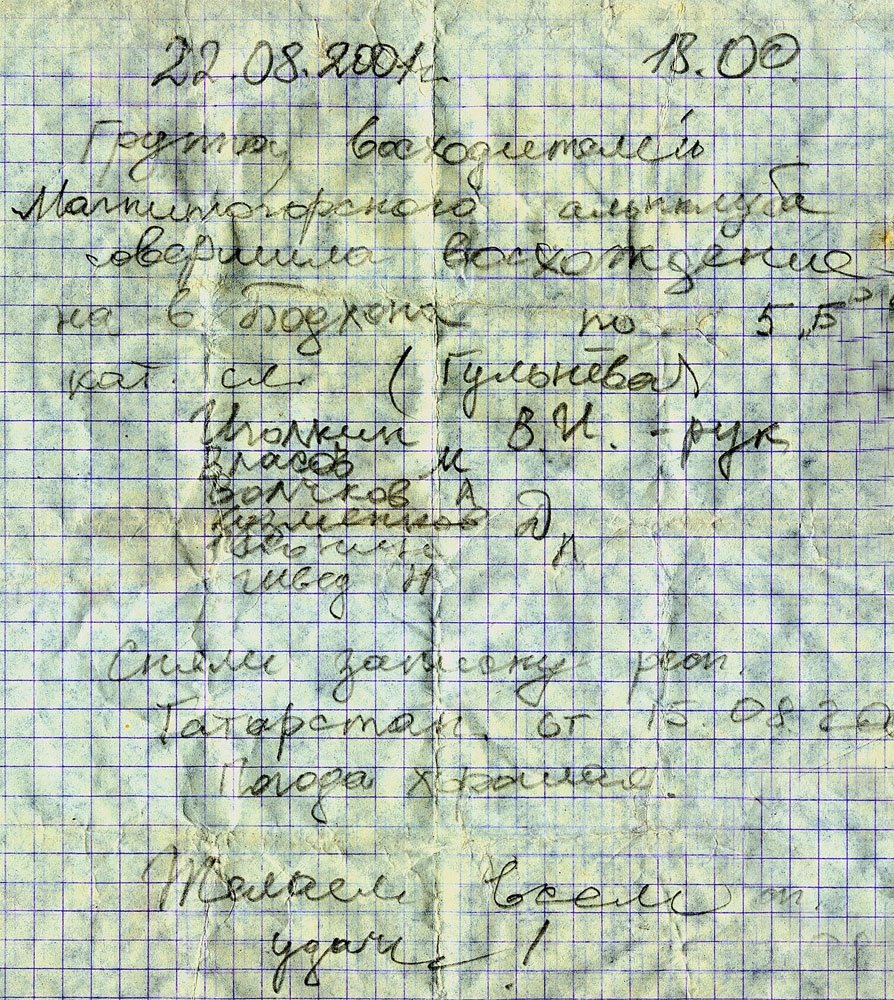 22.08.2001г. 18.00
Группа восходителей
Магнитогорского альпклуба
совершила восхождение
на в. Бодхона по 5 „Б”
кат. сл. (Гульнёва)
Иголкин В.И. - рук
Власов М
Волчков А
Кузменков Д
А
Швед Н
Сняли записку респ.
Татарстан от 15.08.20
Погода хорошая.
Желаем всем
удачи !